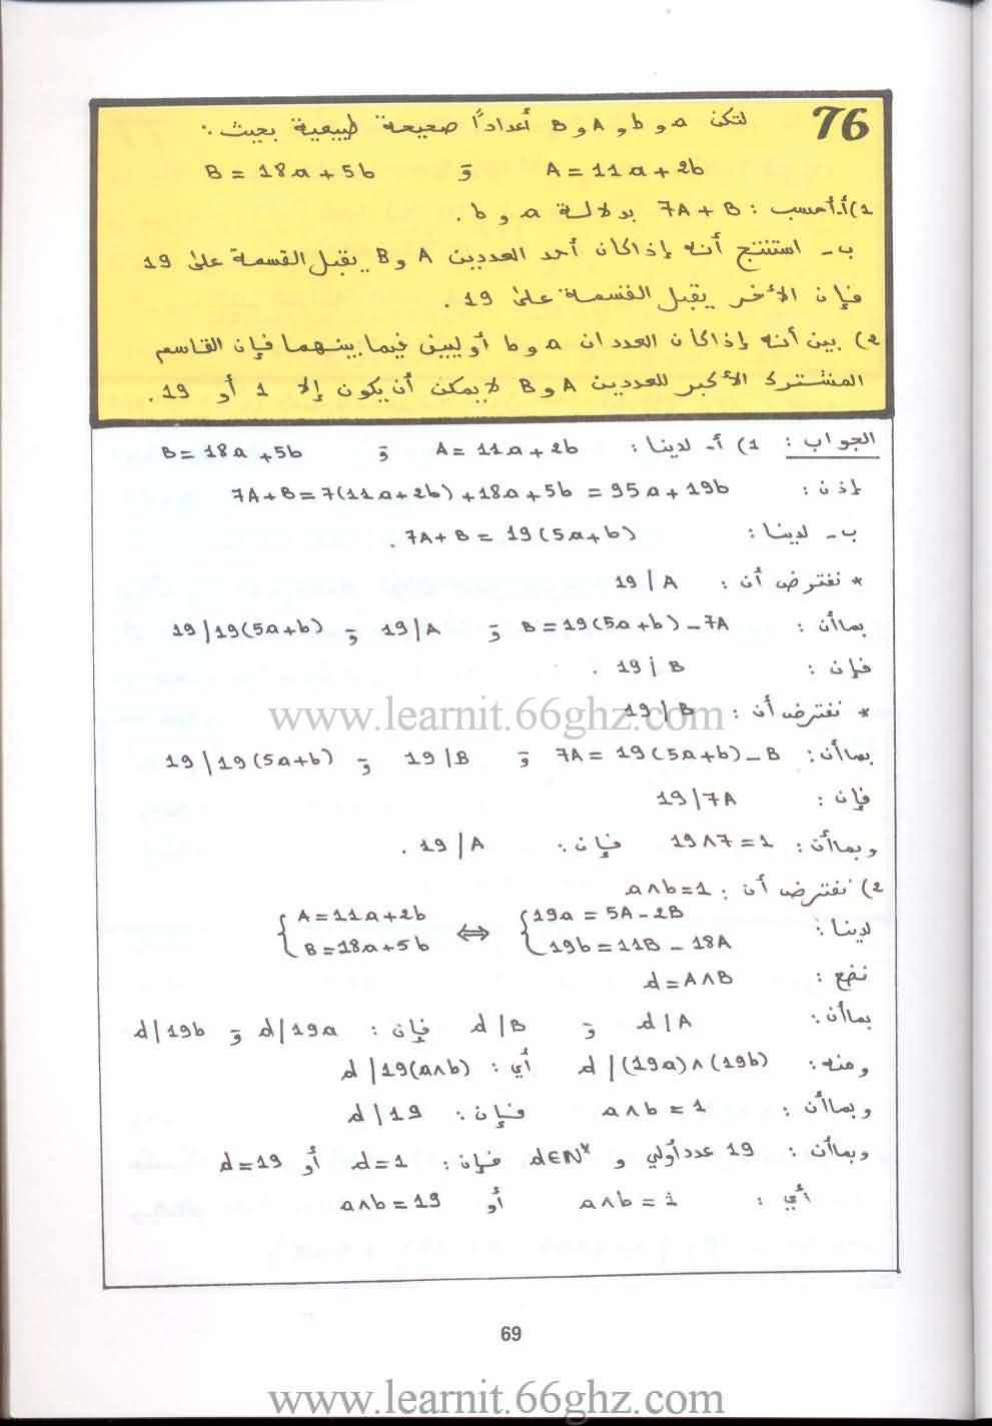 76 لتكن a و b و A و B أعدادًا صحيحة طبيعية بحيث :
A = 11a + 2b و B = 18a + 5b
1) أ. أحسب : 7A + B بدلالة a و b .
ب - استنتج أنه إذا كان أحد العددين A و B يقبل القسمة على 19
فإن الأخر يقبل القسمة على 19 .
2) بين أنه إذا كان العددان a و b أوليين فيما بينهما فإن القاسم
المشترك الأكبر للعددين A و B لا يمكن أن يكون إلا 1 أو 19 .
الجواب : 1) أ- لدينا : A = 11a + 2b و B = 18a + 5b
إذن : 7A + B = 7(11a + 2b) + 18a + 5b = 95a + 19b
ب - لدينا : 7A + B = 19(5a + b) .
* نفترض أن : 19 | A
بما أن : B = 19(5a + b) - 7A و 19|A و 19|19(5a+b)
فإن : 19 | B .
* نفترض أن : 19 | B
www.learnit.66ghz.com
بما أن : 7A = 19(5a+b) - B و 19|B و 19|19(5a+b)
فإن : 19|7A
وبما أن : 19∧7 = 1 فإن : 19|A .
2) نفترض أن : a∧b=1
لدينا : { 19a = 5A - 2B ⇔ { A = 11a + 2b
{ 19b = 11B - 18A { B = 18a + 5b
نضع : d = A∧B
بما أن : d|A و d|B فإن : d|19a و d|19b
ومنه : d|(19a)∧(19b) أي : d|19(a∧b)
وبما أن : a∧b = 1 فإن : d|19
وبما أن : 19 عدد أولي و d∈N* فإن : d=1 أو d=19
أي : a∧b = 1 أو a∧b = 19
69
www.learnit.66ghz.com